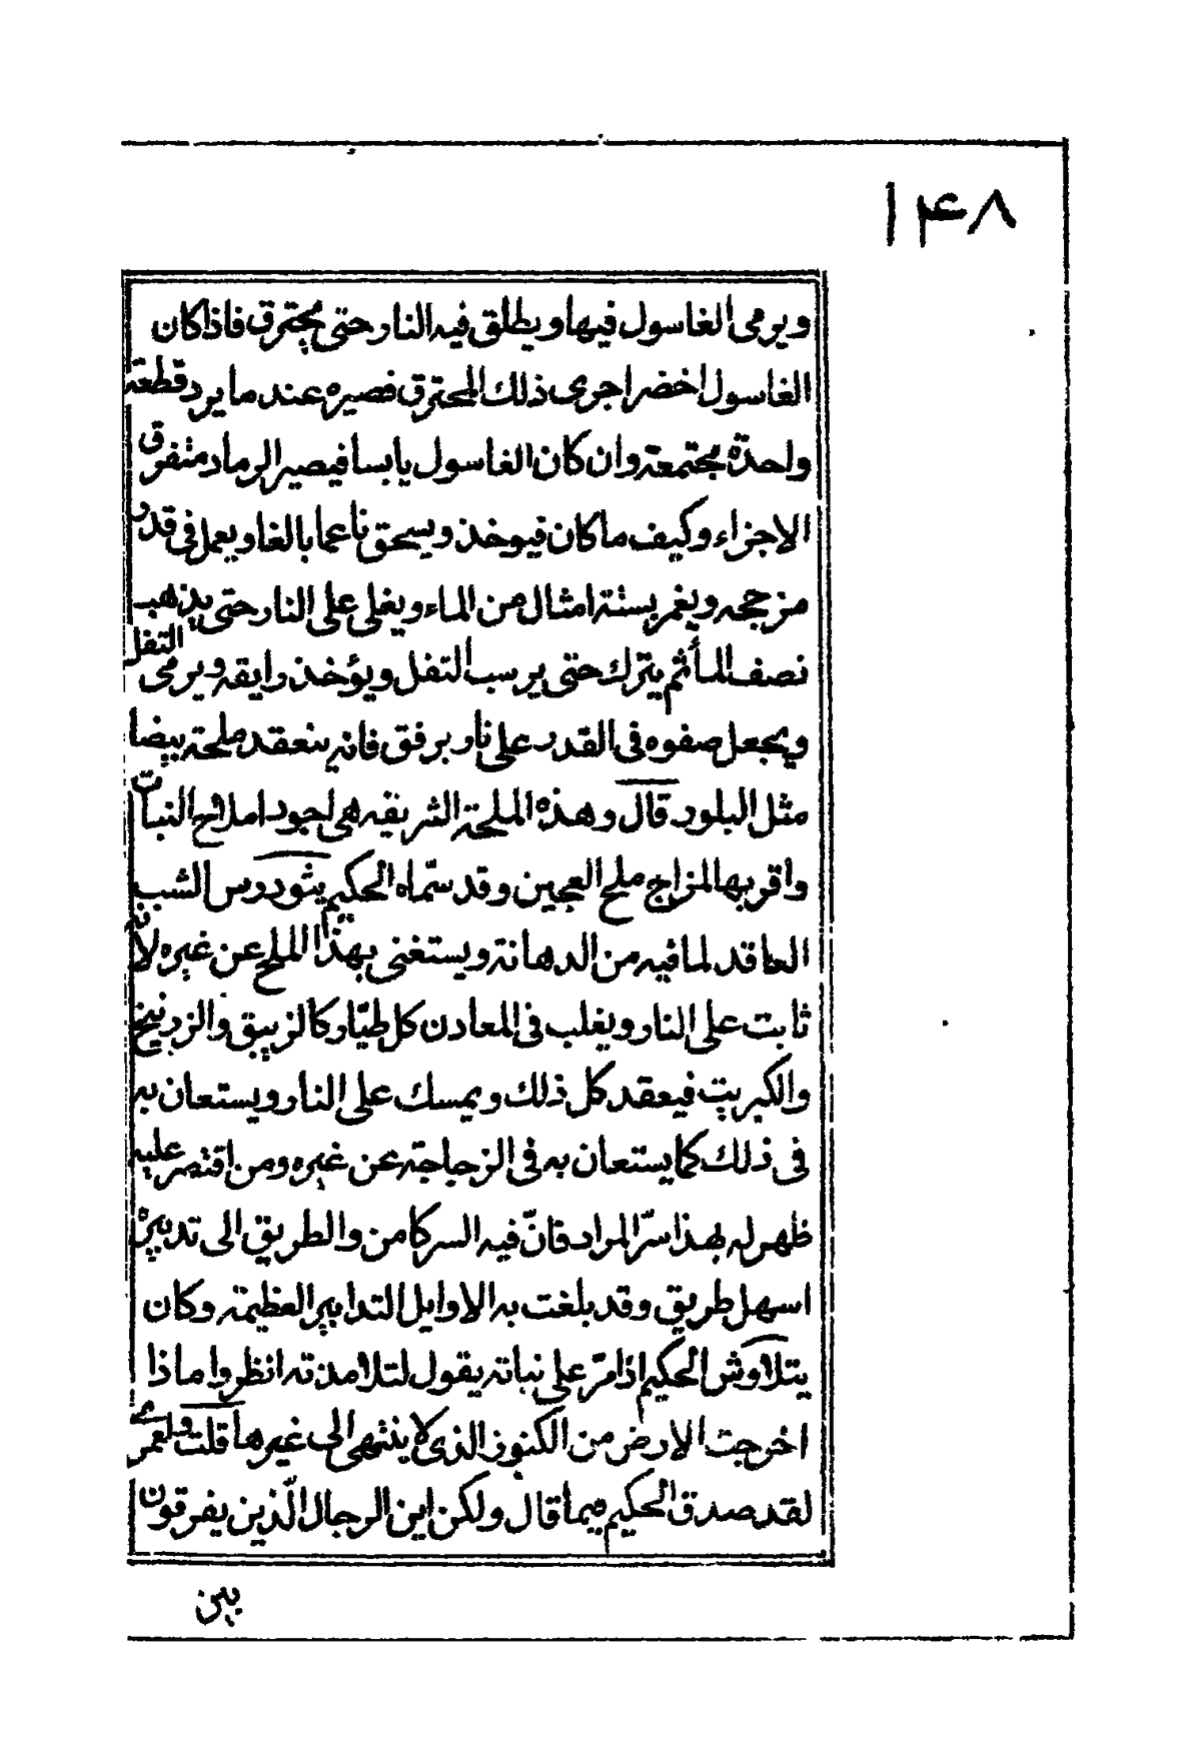 ١۴٨
ويرمى الغاسول فيها ويطلق فيه النار حتى يحترق فاذا كان
الغاسول اخضرا جرى ذلك المحترق فصيره عند ما يرد قطعة
واحدة مجتمعة وان كان الغاسول يابسا فيصير الرماد متفرق
الاجزاء وكيف ما كان فيوخذ ويسحق ناعما بالغا ويعمل فى قدر
مزججه ويغمر بستة امثال من الماء ويغلى على النار حتى يذهب
نصف الماء ثم يترك حتى يرسب التفل ويؤخذ رايقه ويرمى التفل
ويجعل صفوه فى القدر على نار برفق فانه ينعقد ملحة بيضا
مثل البلور قال وهذه الملحة الشريفه هى اجود املاح النبات
واقربها لمزاج ملح العجين وقد سمّاه الحكيم يثودروس الشب
العاقد لما فيه من الدهانة ويستغنى بهذا الملح عن غيره لانه
ثابت على النار ويغلب فى المعادن كل طيّار كالزيبق والزرنيخ
والكبريت فيعقد كل ذلك ويمسك على النار ويستعان به
فى ذلك كما يستعان به فى الزجاجة عن غيره ومن اقتصر عليه
ظهر له بهذا سرّ المراد فانّ فيه السر كامن والطريق الى تدبيره
اسهل طريق وقد بلغت به الاوايل التدابير العظيمة وكان
يتلاوش الحكيم اذا مرّ على نباته يقول لتلامذته انظروا ماذا
اخرجت الارض من الكنوز الذى لا ينتهى الى غيرها قلت ولعمرى
لقد صدق الحكيم فيما قال ولكن اين الرجال الّذين يفرقون
بين